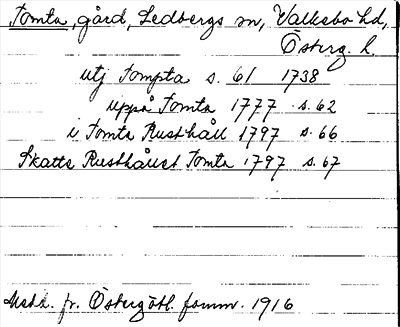 Tomta, gård, Ledbergs sn, Valkebo hd,
Österg. l.
utj Tompta s. 61 1738
uppå Tomta 1777 s. 62
i Tomta Rusthåll 1797 s. 66
Skatte Rusthållet Tomta 1797 s. 67
Medd. fr. Östergötl. fornm. 1916